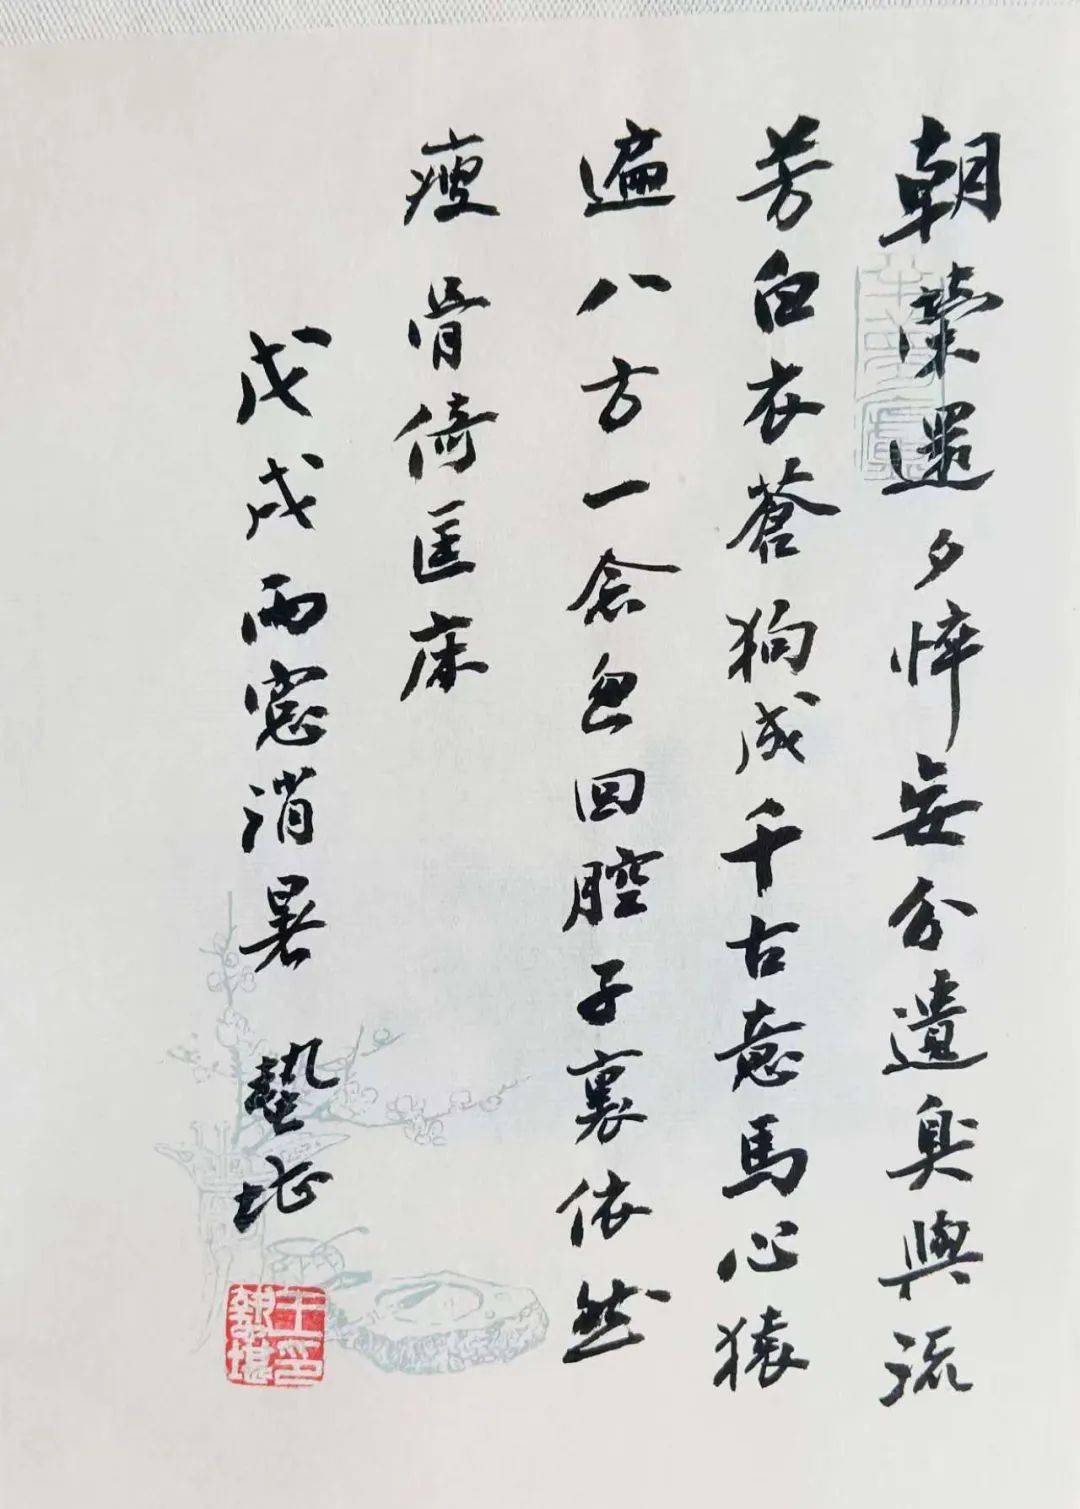 朝榮還夕悴妄分遺臭與流
芳白衣蒼狗成千古意馬心猿
遍八方一念忽回腔子裏依然
瘦骨倚匡床
戊戌雨窻消暑 蟄堪
王印蟄堪